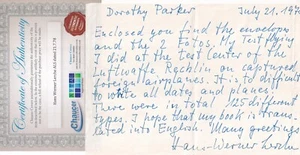 Certificate of Authenticity
Chaucer
Dorothy Parker July 21.
Enclosed you find the envelopes
and the 2 Fotos. My Test flying
I did at the Test Center of the
Luftwaffe Rechlin on captured
foreign airplanes. It is to difficult
to write all dates and planes.
There were in total 125 different
types. I hope that my book is trans-
lated into English. Many greetings
Hans-Werner Lerche